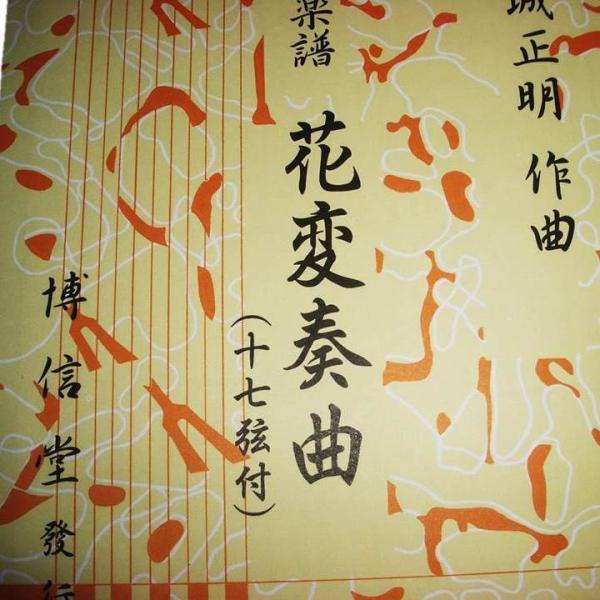 城正明 作曲
楽譜
花変奏曲
(十七弦付)
博信堂發行